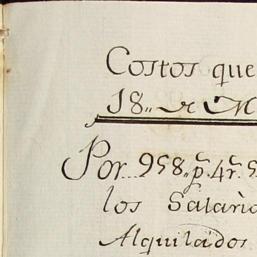 Costos que
18,, de M
Por 958,, p.s 4 r.s
los Salario
Alquilados